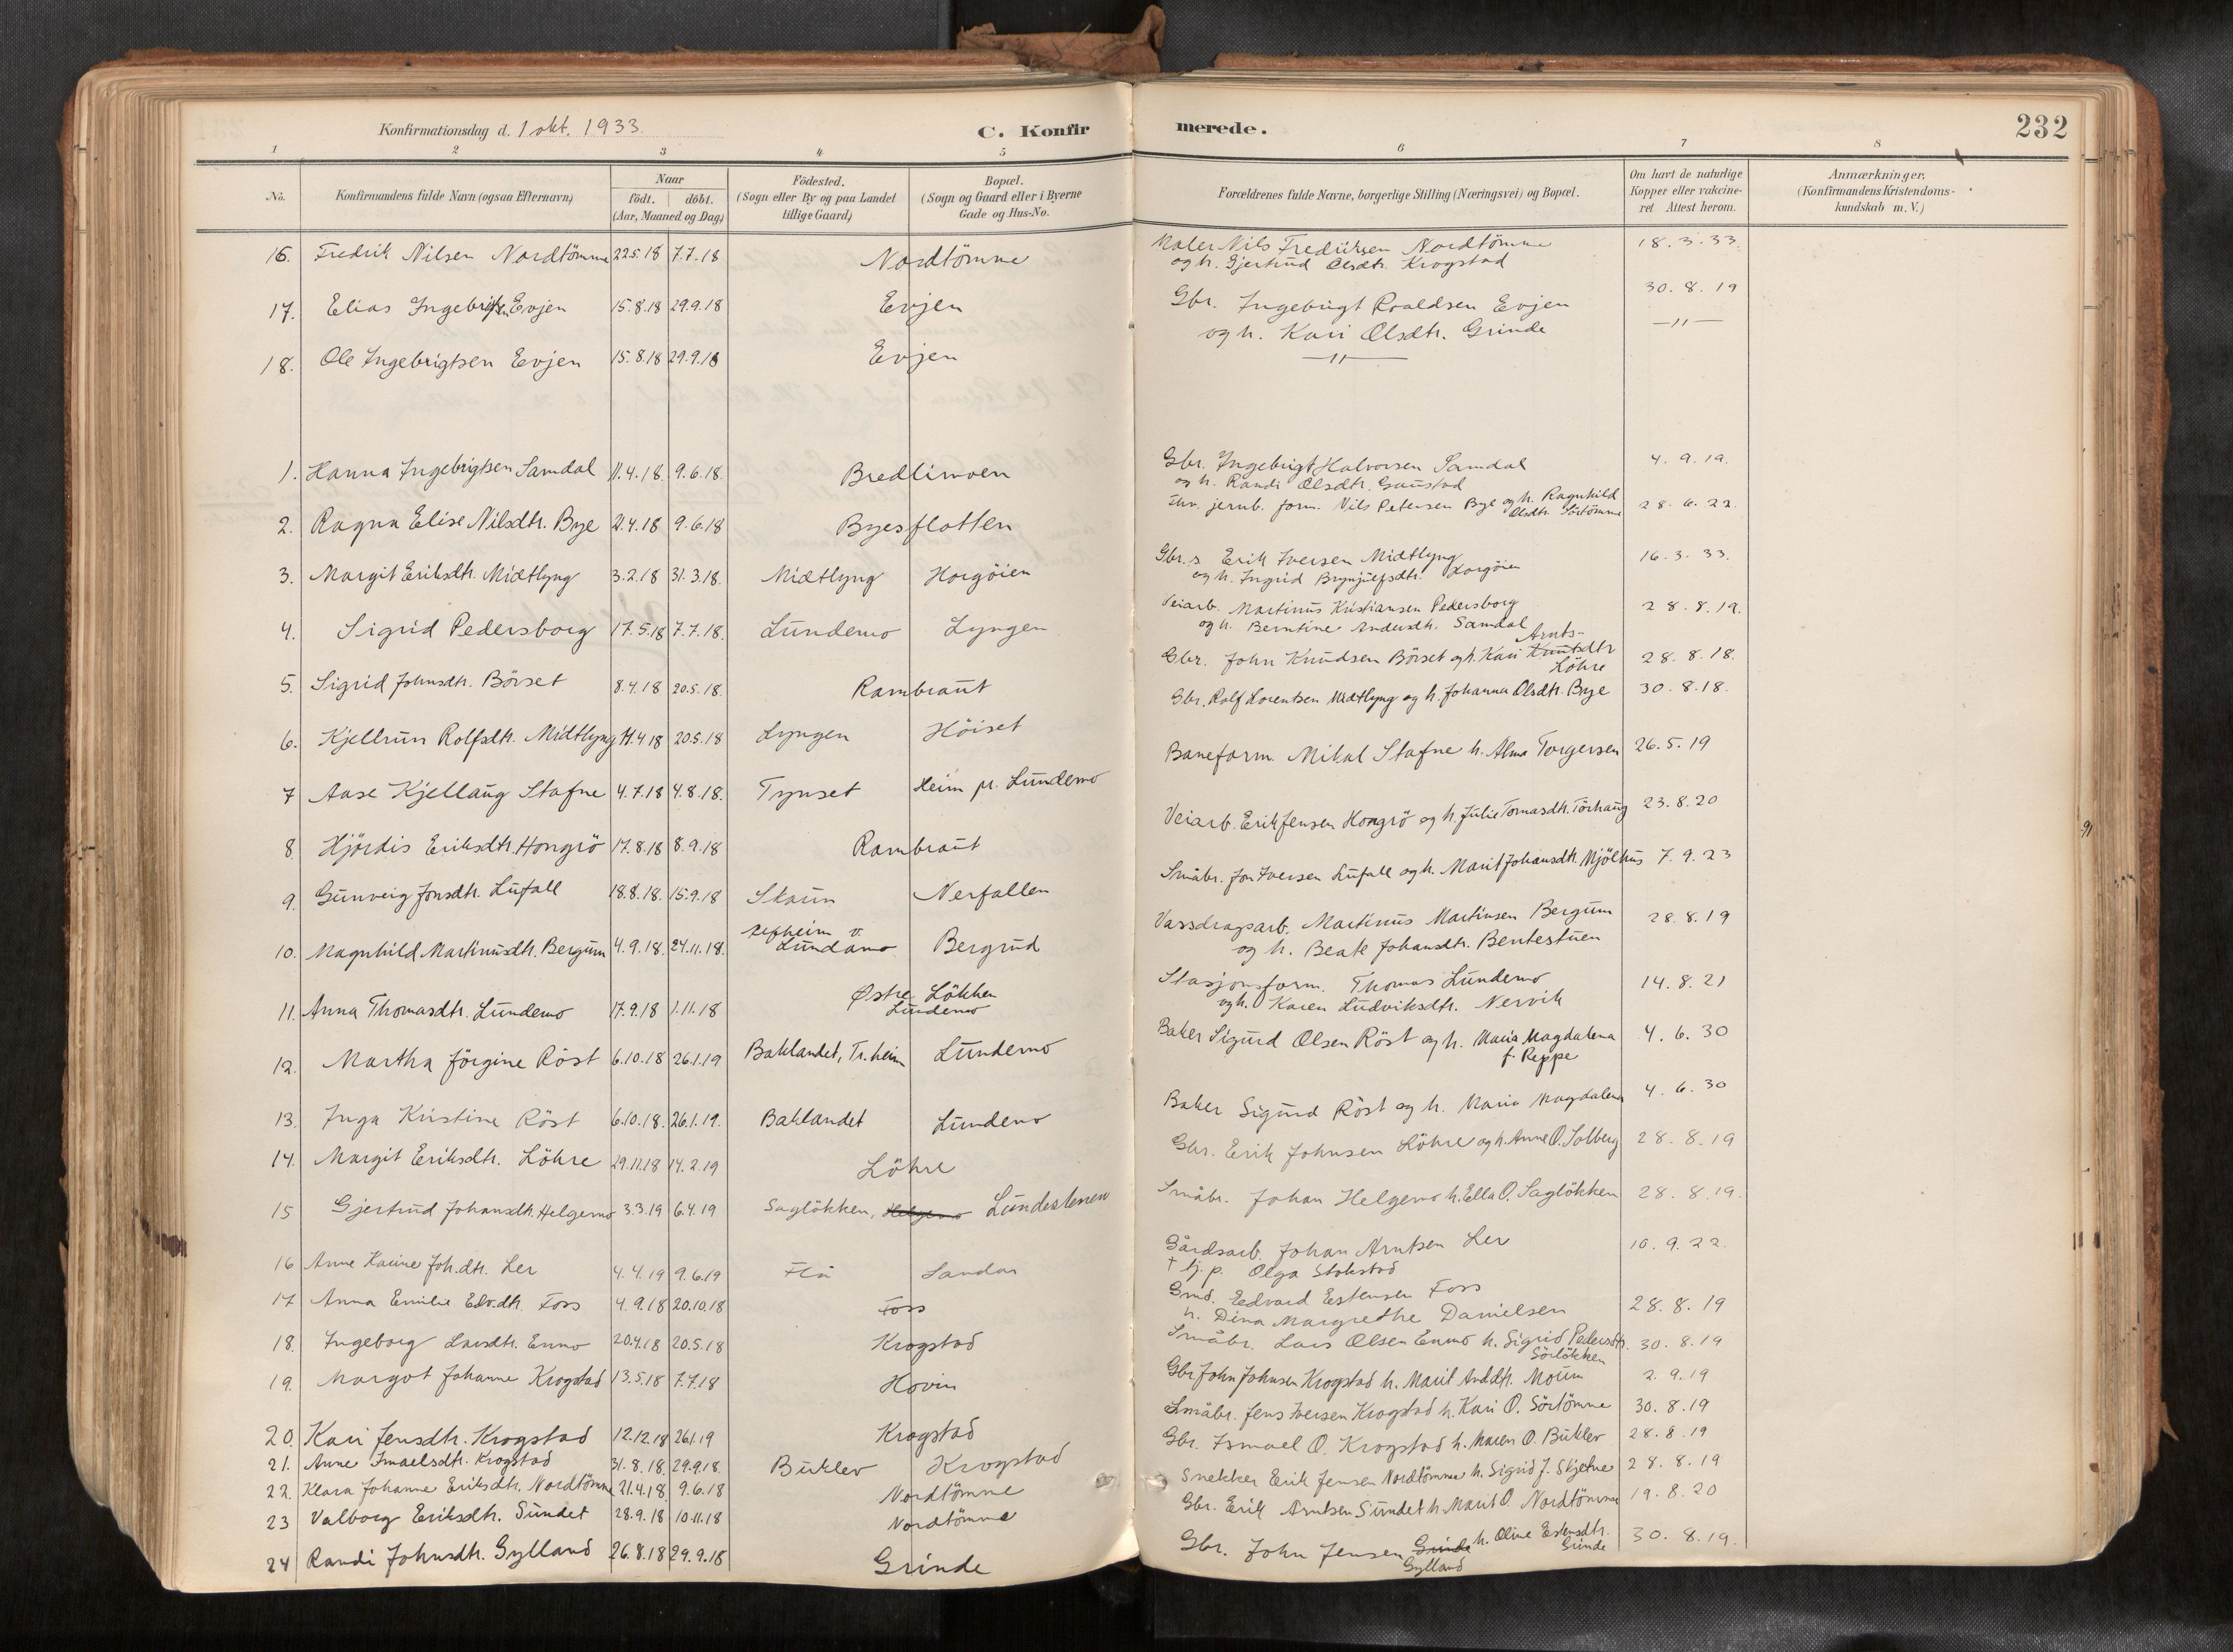 Konfirmationsdag d. 1 okt. 1933. C. Konfirmerede. 232
1 2 3 4 5 6 7 8
No. Konfirmandens fulde Navn (ogsaa Efternavn) Naar födt. döbt. (Aar, Maaned og Dag) Födested. (Sogn eller By og paa Landet tillige Gaard) Bopæl. (Sogn og Gaard eller i Byerne Gade og Hus-No. Forældrenes fulde Navne, borgerlige Stilling (Næringsvei) og Bopæl. Om havt de naturlige Kopper eller vakcineret Attest herom. Anmærkninger. (Konfirmandens Kristendomskundskab m. V.)
16. Fredrik Nilsen Nordtömme 22.5.18 7.7.18 Nordtömme Maler Nils Frediksen Nordtömme 18.3.33.
og h. Gjertrud Olsdtr. Krogstad
17. Elias Ingebrigtsen Evjen 15.8.18 29.9.18 Evjen Gbr. Ingebrigt Roaldsen Evjen 30.8.19
og h. Kari Olsdtr. Grinde
18. Ole Ingebrigtsen Evjen 15.8.18 29.9.18 Evjen —"— —"—
1. Hanna Ingebrigtsen Samdal 11.4.18. 9.6.18. Bredlimoen Gbr. Ingebrigt Halvorsen Samdal 4.9.19.
og h. Randi Olsdtr. Gaustad
2. Ragna Elise Nilsdtr. Bye 21.4.18 9.6.18 Byesflotten jernb. form. Nils Petersen Bye og h. Ragnhild 28.6.22.
Olsdtr. Sörtömme
3. Margit Eriksdtr. Midtlyng 3.2.18 31.3.18. Midtlyng Horgöien Gbr.s Erik Iversen Midtlyng 16.3.33.
og h. Ingrid Brynjulfsdtr. Horgöien
4. Sigrid Pedersborg 17.5.18 7.7.18. Lundemo Lyngen Veiarb. Martinus Kristiansen Pedersborg 28.8.19.
og h. Berntine Andersdtr. Samdal
5. Sigrid Johnsdtr. Börset 8.4.18 20.5.18. Rambraut Gbr. John Knudsen Börset og h. Kari Knutsdtr Arnts- 28.8.18.
Löhre
6. Kjellrun Rolfsdtr. Midtlyng 14.4.18 20.5.18 Lyngen Höiset Gbr. Rolf Lorentsen Midtlyng og h. Johanna Olsdtr. Bye 30.8.18.
7 Aase Kjellaug Stafne 4.7.18 4.8.18. Tynset Heim pr. Lundemo Baneform. Mikal Stafne h. Alma Torgersen 26.5.19
8. Hjördis Eriksdtr. Hongrö 17.8.18 8.9.18 Rambraut Veiarb. Erik Jensen Hongrö og h. Julie Tomasdtr. Törhaug 23.8.20
9. Gunveig Jonsdtr. Lufall 18.8.18. 15.9.18 Skaun Nerfallen Småbr. Jon Iversen Lufall og h. Marit Johansdtr. Mjölhus 7.9.23
10. Magnhild Martinusdtr. Bergum 4.9.18. 24.11.18. v. Lundamo Bergrud Vassdragarb. Martinus Martinsen Bergum 28.8.19
og h. Beate Johansdtr. Bentestuen
11. Anna Thomasdtr. Lundemo 17.9.18 1.11.18 Østre Lökken Stasjonsform. Thomas Lundemo 14.8.21
Lundemo og h. Karen Ludviksdtr. Nervik
12. Martha Jörgine Röst 6.10.18 26.1.19 Baklandet, Tr.heim Lundemo Baker Sigurd Olsen Röst og h. Maria Magdalena 4.6.30
f. Reppe
13. Inga Kristine Röst 6.10.18. 26.1.19. Baklandet Lundemo Baker Sigurd Röst og h. Maria Magdalena 4.6.30
14. Margit Eriksdtr. Löhre 29.11.18 14.2.19 Löhre Gbr. Erik Johnsen Löhre og h. Anne O. Solberg 28.8.19
15 Gjertrud Johansdtr. Helgemo 3.3.19 6.4.19 Saglökken, Helgemo Lundesteren Småbr. Johan Helgemo h. Ella O. Saglökken 28.8.19.
16 Anne Karine Joh.dtr. Ler 4.4.19 9.6.19 Flå Sandan Gårdsarb. Johan Arntsen Ler 10.9.22.
+ tj. p. Olga Stokstad
17 Anna Emilie Edv.dtr. Foss 4.9.18 20.10.18 Foss Grnd. Eedvard Estensen Foss 28.8.19
h. Dina Margrethe Danielsen
18. Ingeborg Larsdtr. Enmo 20.4.18 20.5.18 Krogstad Småbr. Lars Olsen Enmo h. Sigrid Pedersdtr. 30.8.19
Sörlökken
19. Margot Johanne Krogstad 13.5.18 7.7.18 Hovin Gbr John Johnsen Krogstad h. Marit And.dtr. Moum 2.9.19
20. Kari Jensdtr. Krogstad 12.12.18 26.1.19 Krogstad Småbr. Jens Iversen Krogstad h. Kari O. Sörtömme 30.8.19
21. Anne Imaelsdtr. Krogstad 31.8.18. 29.9.18. Buklev Krogstad Gbr. Ismael O. Krogstad h. Maren O. Buklev 28.8.19
22. Klara Johanne Eriksdtr. Nordtömme 21.4.18. 9.6.18 Nordtömme Snekker Erik Jensen Nordtömme h. Sigrid J. Skjetne 28.8.19
23 Valborg Eriksdtr. Sundet 28.9.18 10.11.18 Nordtömme Gbr. Erik Arntsen Sundet h. Marit O. Nordtömme 19.8.20
24 Randi Johnsdtr. Gylland 26.8.18 29.9.18 Grinde Gbr. John Jensen Grinde h. Oline Estensdtr. 30.8.19.
Gylland Grinde
91